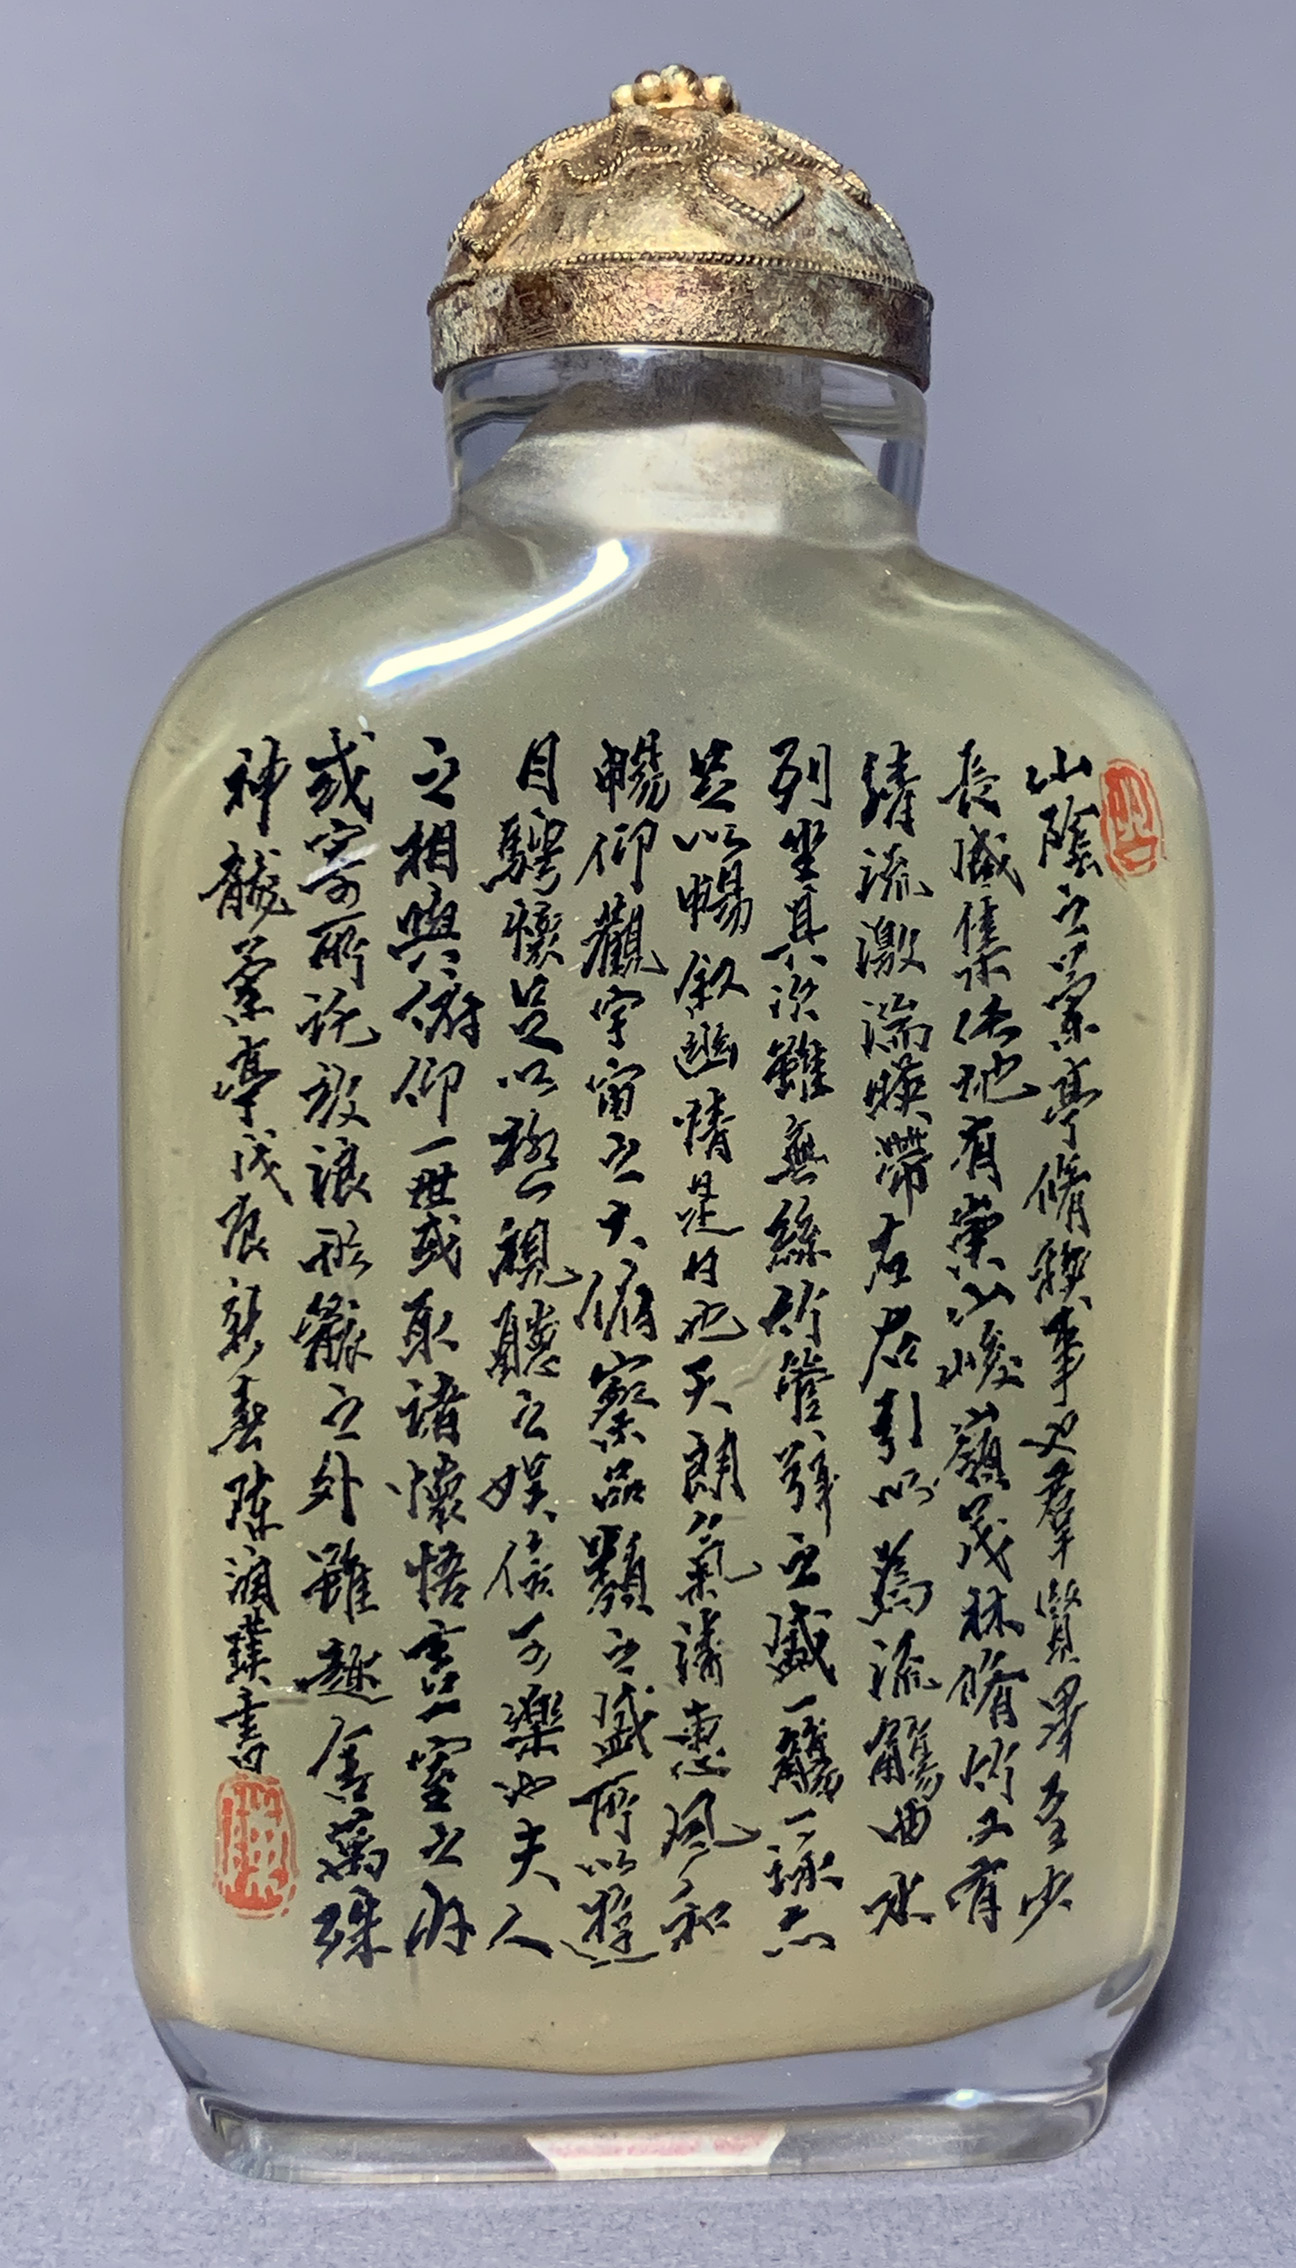 山陰之蘭亭脩禊事也羣賢畢至少
長咸集此地有崇山峻嶺茂林脩竹又有
清流激湍暎帶左右引以為流觴曲水
列坐其次雖無絲竹管弦之盛一觴一詠亦
足以暢叙幽情是日也天朗氣清惠風和
暢仰觀宇宙之大俯察品類之盛所以遊
目騁懷足以極視聽之娛信可樂也夫人
之相與俯仰一世或取諸懷悟言一室之內
或寄所託放浪形骸之外雖趣舍萬殊
神龍蘭亭戊辰新春陳潤璞書